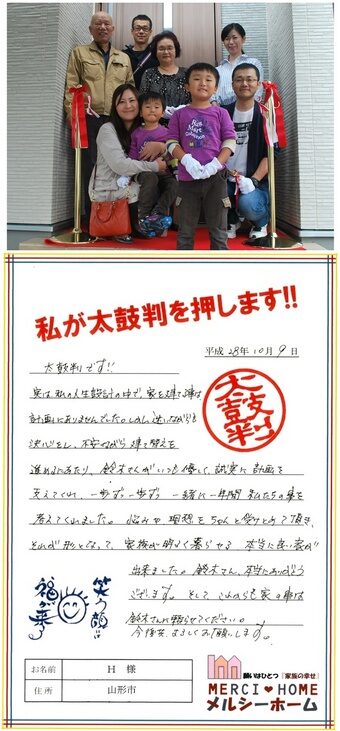 私が太鼓判を押します!!
平成 28年 10月 9日
太鼓判です!!
太鼓判
実は私の人生設計の中で、家を建て替は
計画にありませんでした。しかし迷いながらも
決心をし、不安ながら建て替えを
進めるにあたり、鈴木さんがいつも優しく、誠実に計画を
支えてくれ、一歩ずつ一歩ずつ 一緒に一年間 私たちの事を
考えてくれました。悩みや理想をちゃんと受けとめて頂き、
それが形となって、家族が明るく暮らせる 本当に良い家が
出来ました。鈴木さん、本当にありがとう
ございます。そして これからも家の事は
鈴木さんに頼らせてください。
今後共、よろしくお願いします。
笑う顔に
福が来る
お名前 H 様
住所 山形市
願いはひとつ「家族の幸せ」
MERCI♥HOME
メルシーホーム